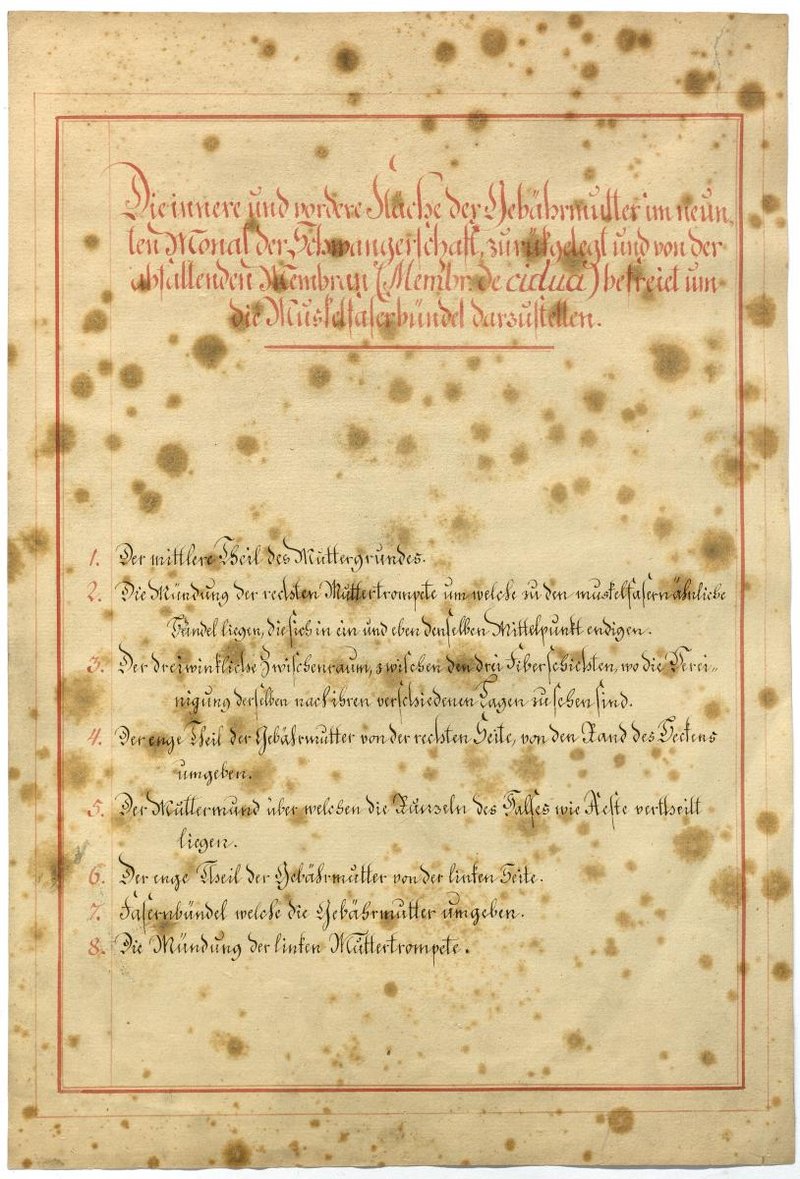 Die innere und vordere Fläche der Gebährmutter im neun,
ten Monat der Schwangerschaft, zurükgelegt und von der
abfallenden Membran (Membr. de cidua) befreiet um
die Muskelfaserbündel darzustellen.
1. Der mittlere Theil des Muttergrundes.
2. Die Mündung der rechten Muttertrompete um welche zu den muskelfasern ähnliche
Bündel liegen, die sich in ein und eben denselben Mittelpunkt endigen.
3. Der dreiwinkliche Zwischenraum, zwischen den drei Fiberschichten, wo die Verei-
nigung derselben nach ihren verschiedenen Lagen zu sehen sind.
4. Der enge Theil der Gebährmutter von der rechten Seite, von den Rand des Beckens
umgeben.
5. Der Muttermund über welchen die Runzeln des Halses wie Aeste vertheilt
liegen.
6. Der enge Theil der Gebährmutter von der linken Seite.
7. Fasernbündel welche die Gebährmutter umgeben.
8. Die Mündung der linken Muttertrompete.